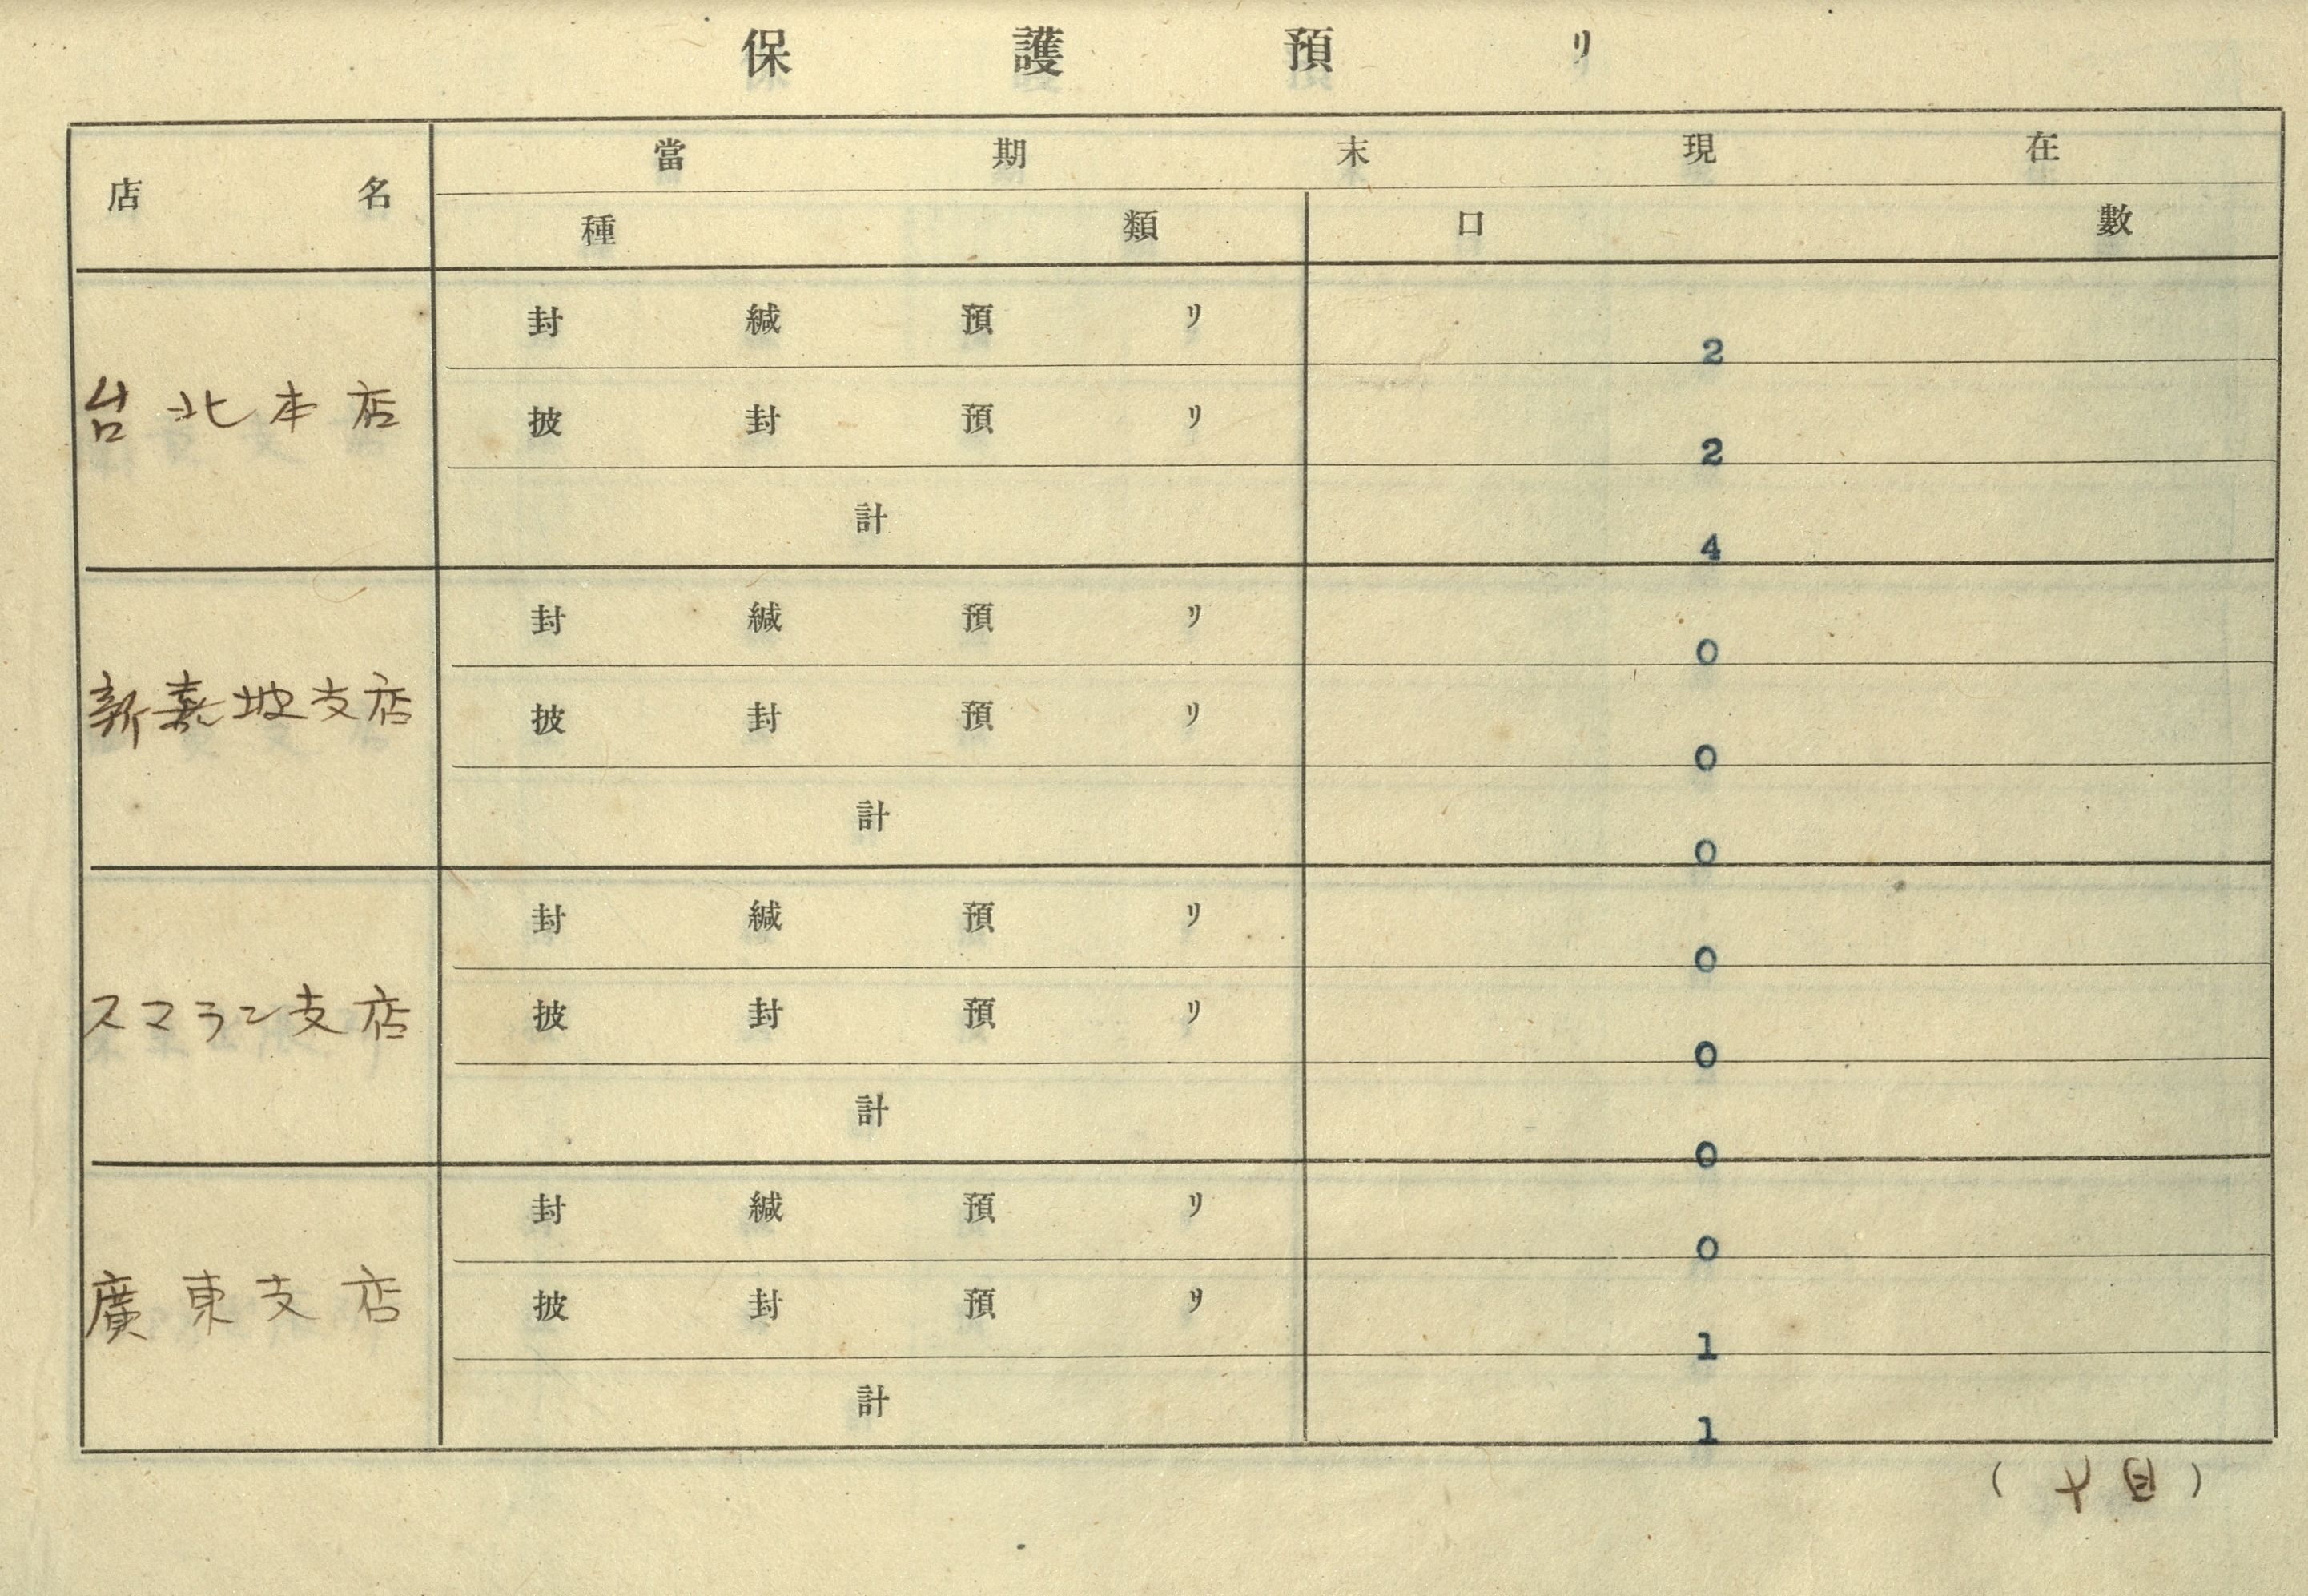 保護預リ
店名 當期末現在
種類 口數
台北本店 封緘預リ 2
披封預リ 2
計 4
新嘉坡支店 封緘預リ 0
披封預リ 0
計 0
スマラン支店 封緘預リ 0
披封預リ 0
計 0
廣東支店 封緘預リ 0
披封預リ 1
計 1